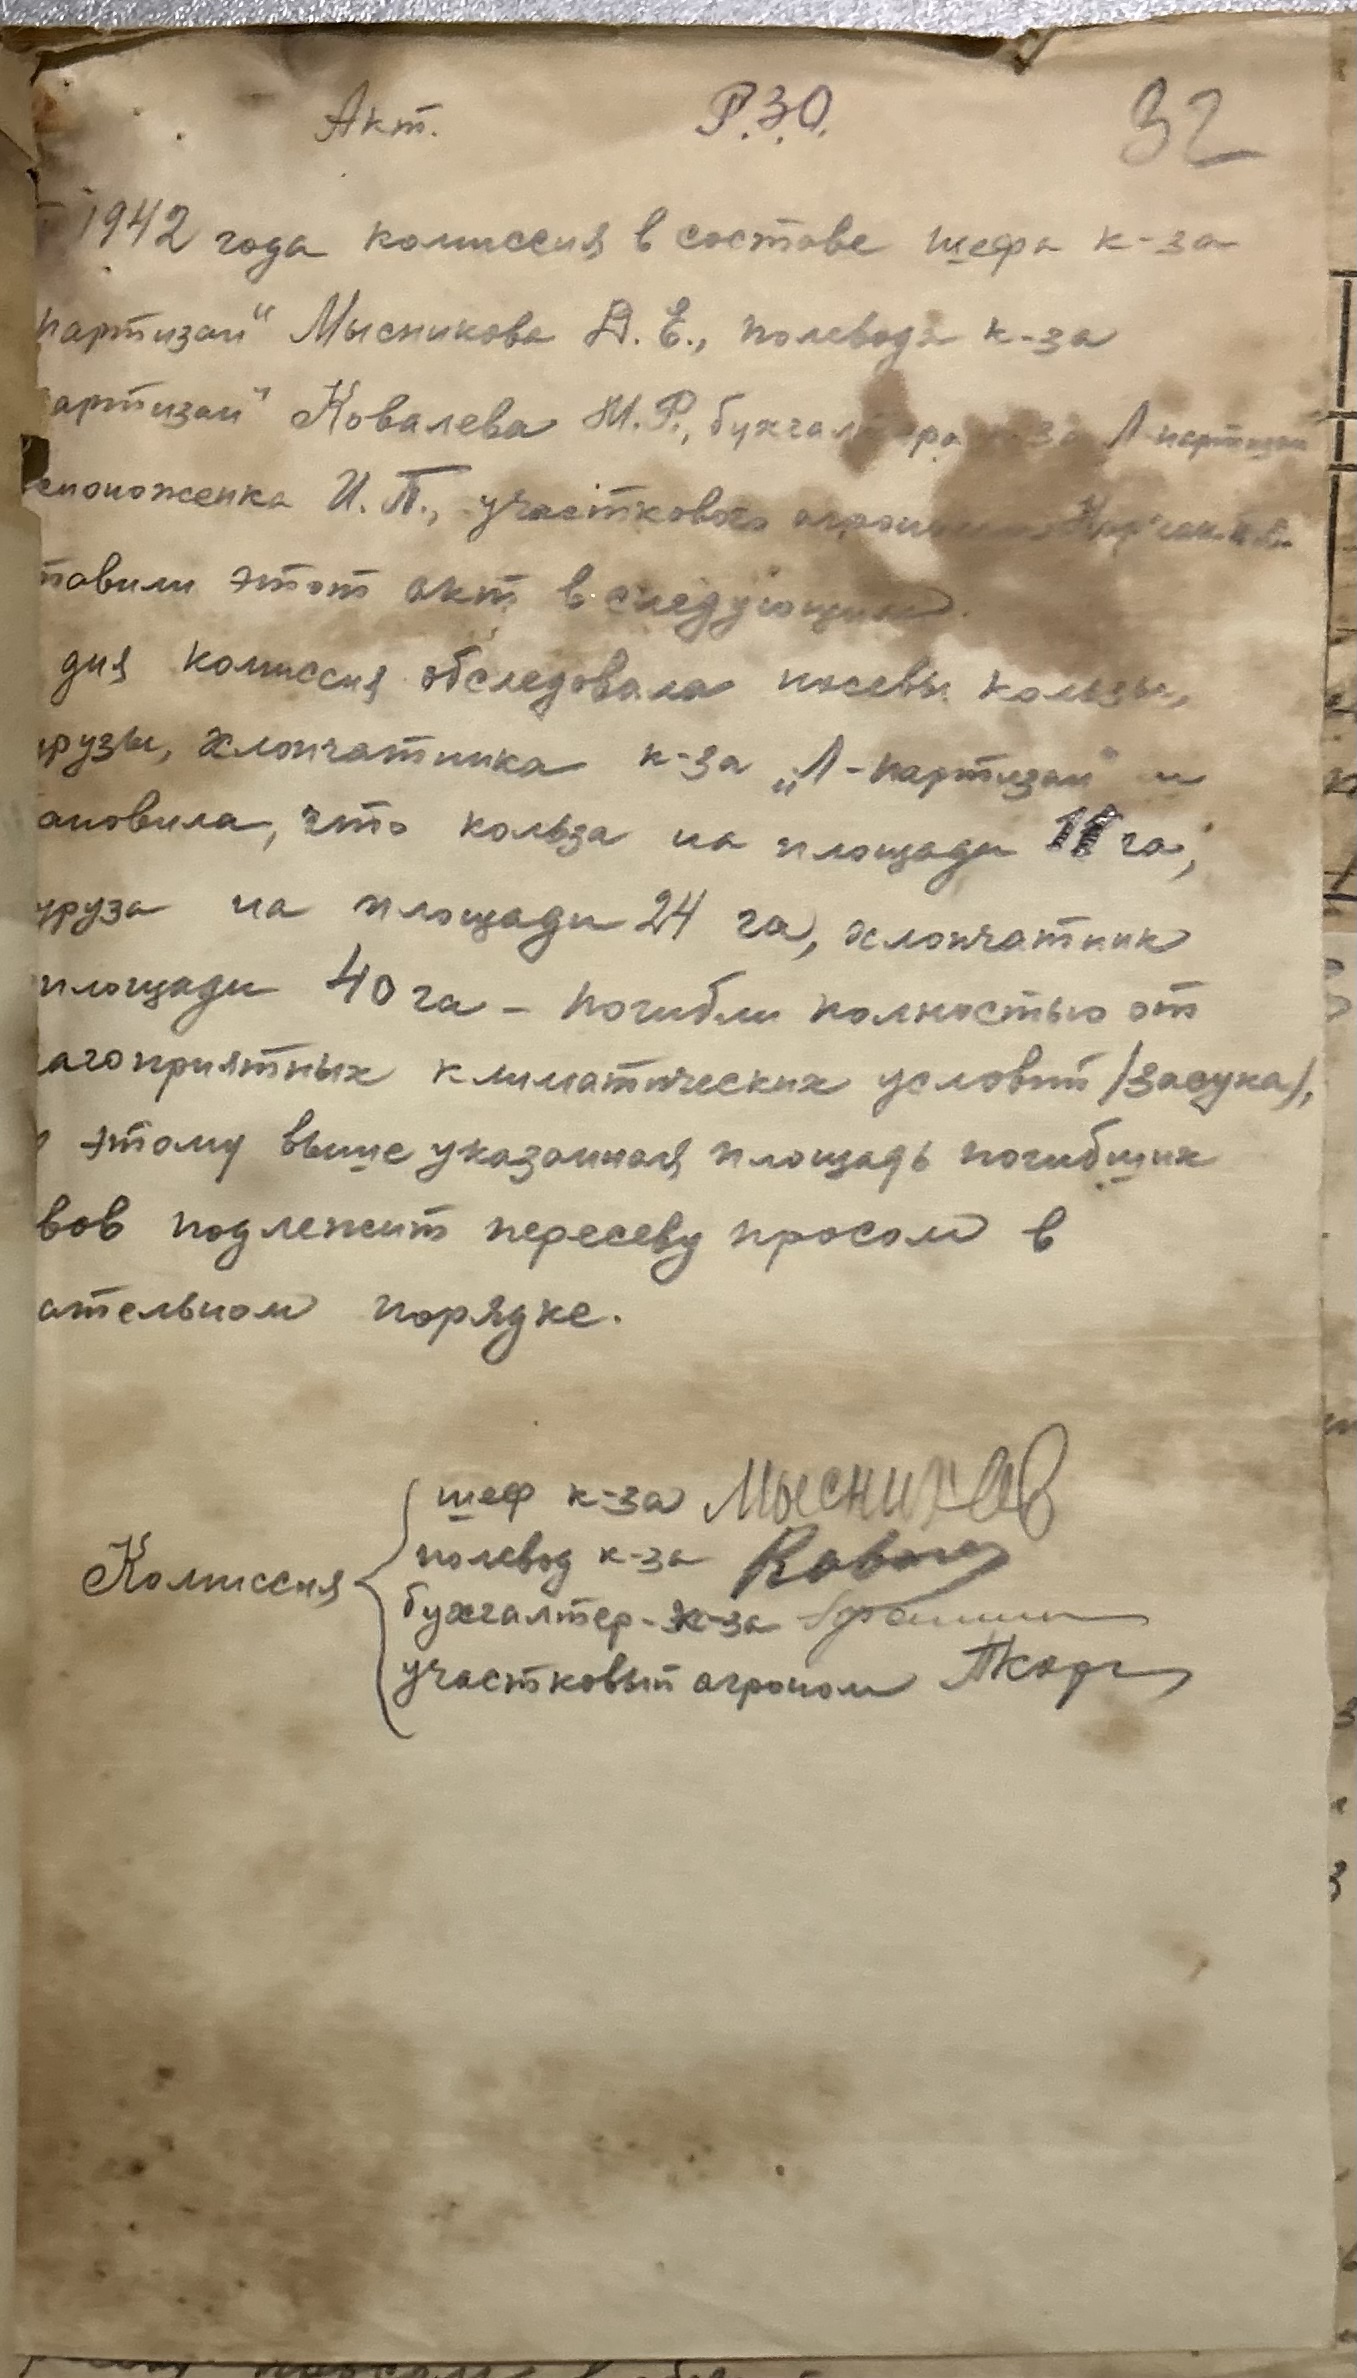 Акт. Р.З.О. 32
1942 года комиссия в составе шефа к-за
партизан" Мысникова Д. Е., полевода к-за
артизан" Ковалева М. Р., бухгалтера к-за Л-партизан
моноженка И. П., участкового агронома
тавили этот акт в следующем
дня комиссия обследовала посевы кользы,
урузы, хлопчатника к-за „Л-партизан" и
ановила, что кольза на площади 11 га,
уруза на площади 24 га, хлопчатник
площади 40 га – погибли полностью от
агоприятных климатических условий /засуха/,
этому выше указанная площадь погибших
вов подлежит пересеву просом в
ательном порядке.
Комиссия
шеф к-за Мысников
полевод к-за
бухгалтер к-за
участковый агроном